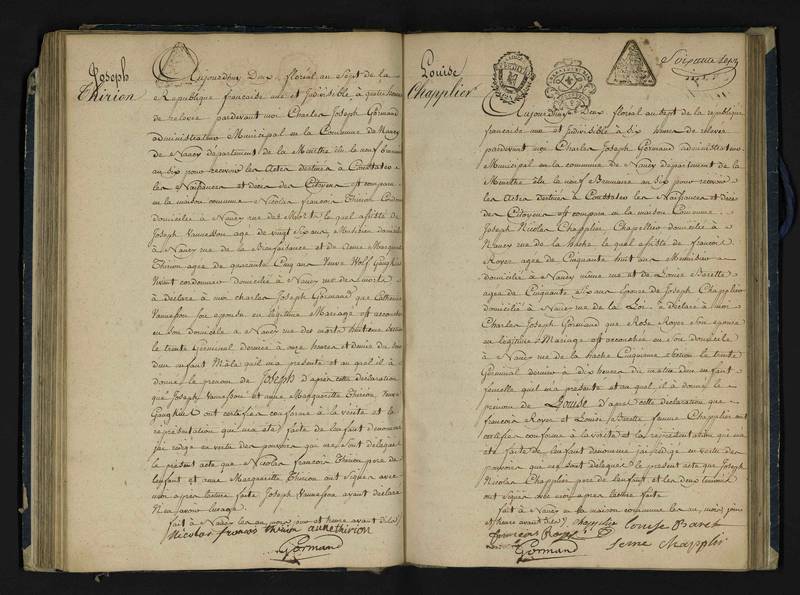 Joseph
Thirion
Aujourdhui Deux floréal an Sept de la
Republique francaise une et Indivisible à quatre heures
de relevée pardevant moi Charles Joseph Gormand
administrateur Municipal de la Commune de Nancy
de Nancy département de la Meurthe élu le neuf Brumaire
an six pour recevoir les Actes destinés à Constater
les Naissances et décès des Citoyens est comparu
en la maison commune Nicolas francois Thirion Cordonnier
domicilié à Nancy rue des Morts le quel assisté de
Joseph Vannesson age de vingt Six ans Menuisier domicilié
à Nancy rue de la Bienfaisance et de Anne Margueritte
Thirion agée de quarante Cinq ans Veuve Wolf Gangkille
vivant cordonnier domiciliée à Nancy rue des morts
à déclaré à moi charles Joseph Gormand que Catherine
Vannesson son épouse en légitime Mariage est accouchée
en son domicile à Nancy rue des morts huitieme Section
le trente Germinal dernier à onze heures et demie du soir
d'un enfant Mâle qu'il m'a présenté et au quel il à
donné le prenom de Joseph d'après cette déclaration
que Joseph Vannesson et anne Margueritte Thirion, veuve
Gangkille ont certifiée conforme à la vérité et la
représentation qui m'a été faite de lenfant denommé
jai rédigé en vertu des pouvoirs qui me sont délégués
le présent acte que Nicolas francois Thirion pere de
lenfant et anne Margueritte Thirion ont signés avec
moi après lecture faite Joseph Vannesson ayant déclaré
ne savoir
fait à Nancy les an, mois, jour et heure avant dits
Nicolas francois thirion anne thirion
Gormand
Louise
Chapplier
Soixante Sept
Aujourdhui Deux floréal an sept de la republique
francaise une et Indivisible à Six heures de relevée
pardevant moi Charles Joseph Gormand administrateur
Municipal en la commune de Nancy département de la
Meurthe élu le neuf Brumaire an six pour recevoir
les Actes destinés à Constater les Naissances et décès
des Citoyens est comparu en la maison Commune
Joseph Nicolas Chapplier, Chapellier domicilié à
Nancy rue de la hache le quel assisté de francois
Royer agé de Cinquante huit ans Menuisier
domicilié à Nancy même rue et de Louise Barette
agée de Cinquante Six ans épouse de Joseph Chapplier
domicilié à Nancy rue de la Loi à déclaré à moi
Charles Joseph Gormand que Rose Royer son épouse
en legitime Mariage est accouchée en son domicile
à Nancy rue de la hache Cinquieme Section le trente
Germinal dernier à dix heures du matin d'un enfant
femelle qu'il m'a présenté et au quel il à donné le
prenom de Louise d'après cette déclaration que
francois Royer et Louise Barette femme Chapplier ont
certifiée conforme à la vérité et la représentation qui m'a
été faite de lenfant denommé jai rédigé en vertu des
pouvoirs qui me sont délégués le présent acte que Joseph
Nicolas Chapplier pere de lenfant et les deux temoins
ont signés avec moi après lecture faite
fait à Nancy en la maison commune les an, mois jour
et heure avant dits chapplier louise Baret
francois Royer feme chapplier
Gormand